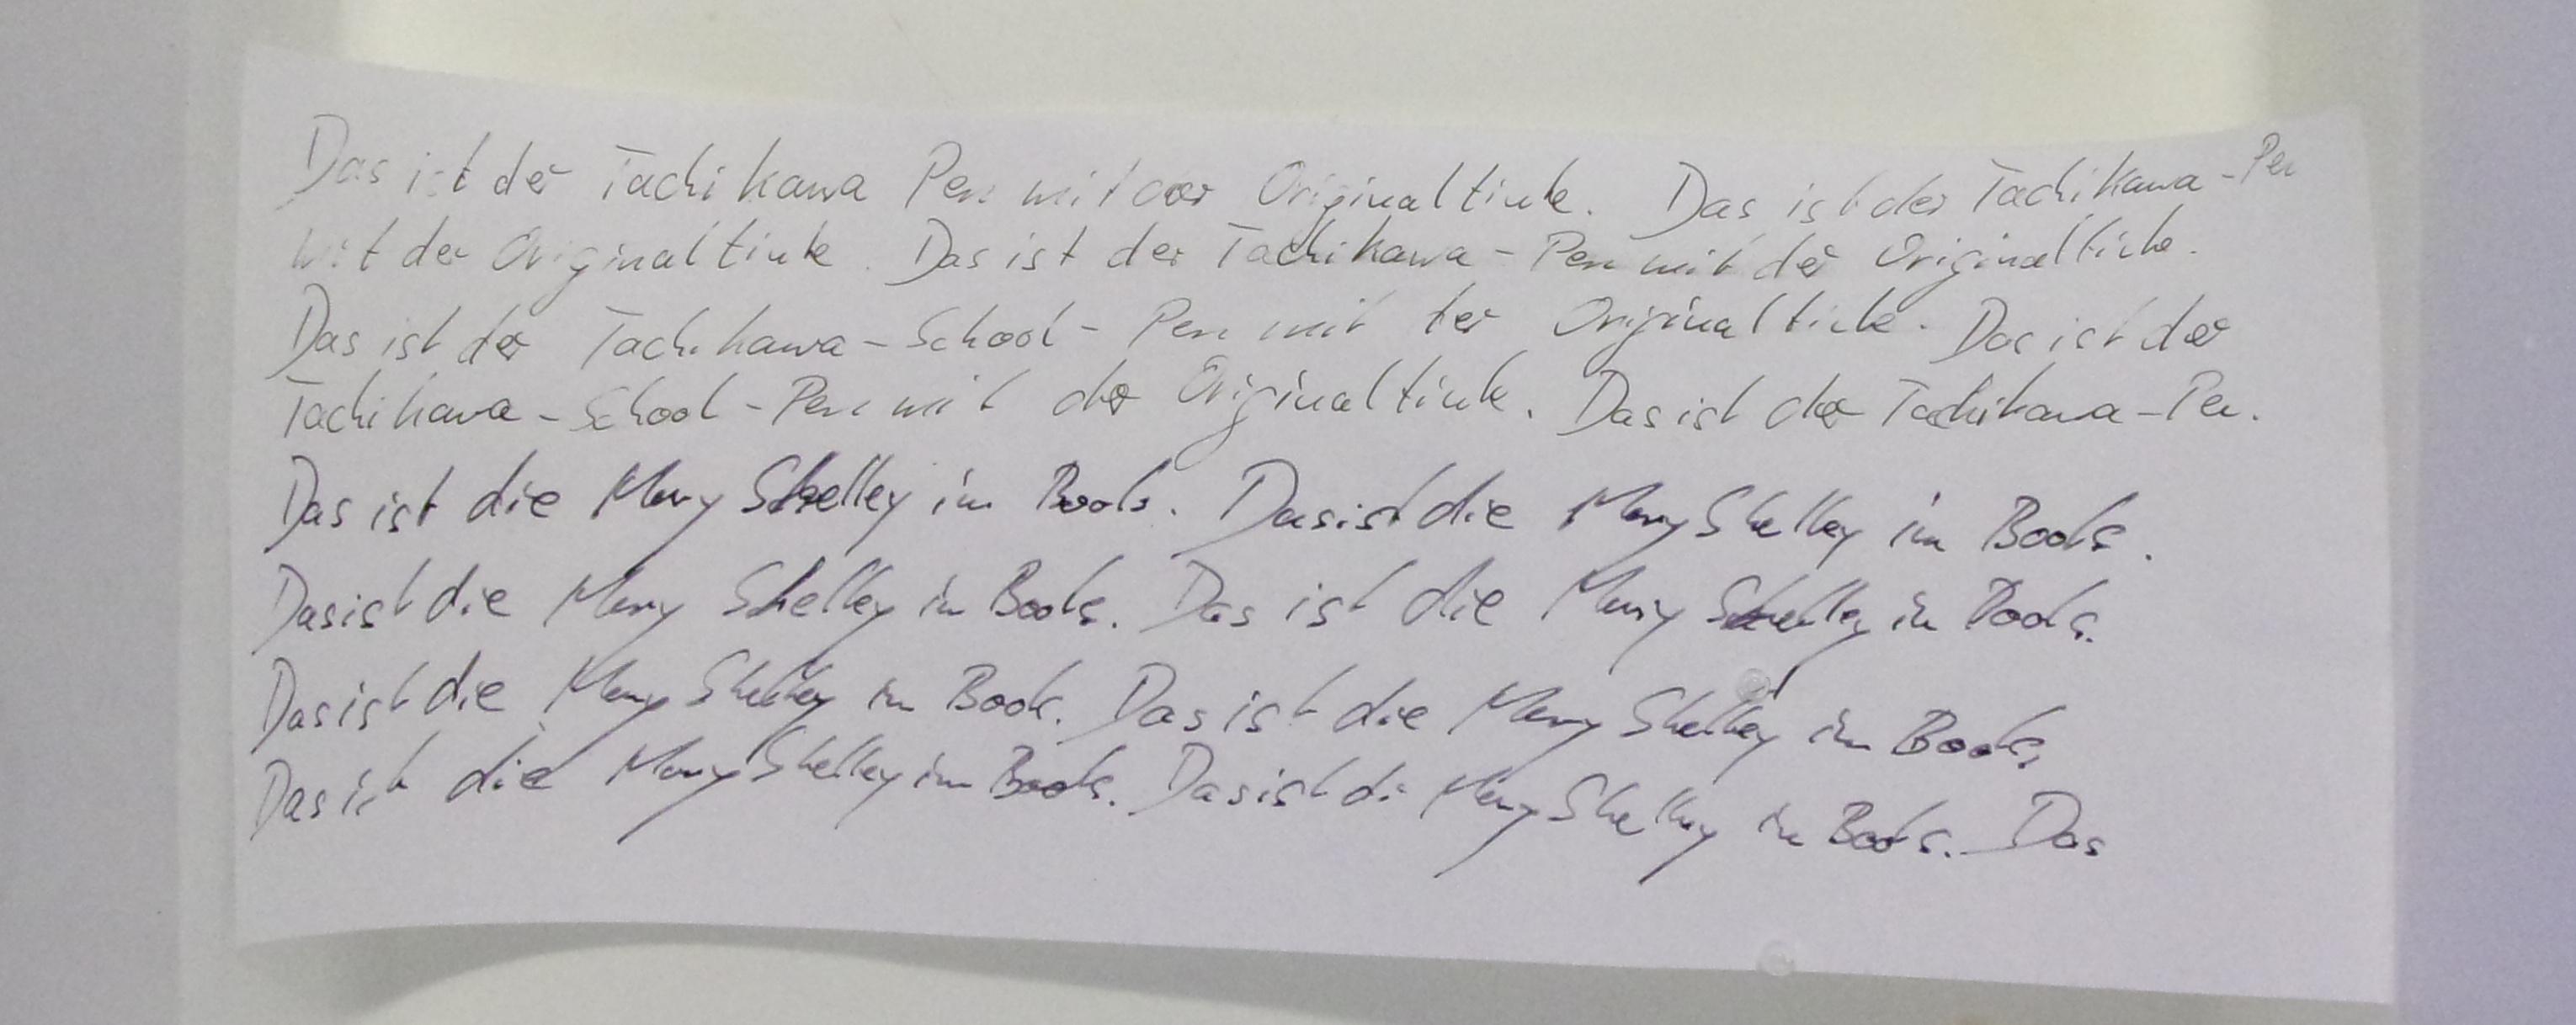 Das ist der Tachikawa Pen mit der Originaltinte. Das ist der Tachikawa-Pen
mit der Originaltinte. Das ist der Tachikawa-Pen mit der Originaltinte.
Das ist der Tachikawa-School-Pen mit der Originaltinte. Das ist der
Tachikawa-School-Pen mit der Originaltinte. Das ist der Tachikawa-Pen.
Das ist die Mary Shelley im Books. Das ist die Mary Shelley im Books.
Das ist die Mary Shelley im Books. Das ist die Mary Shelley in Books.
Das ist die Mary Shelley im Books. Das ist die Mary Shelley im Books.
Das ist die Mary Shelley im Books. Das ist di Mary Shelley im Books. Das